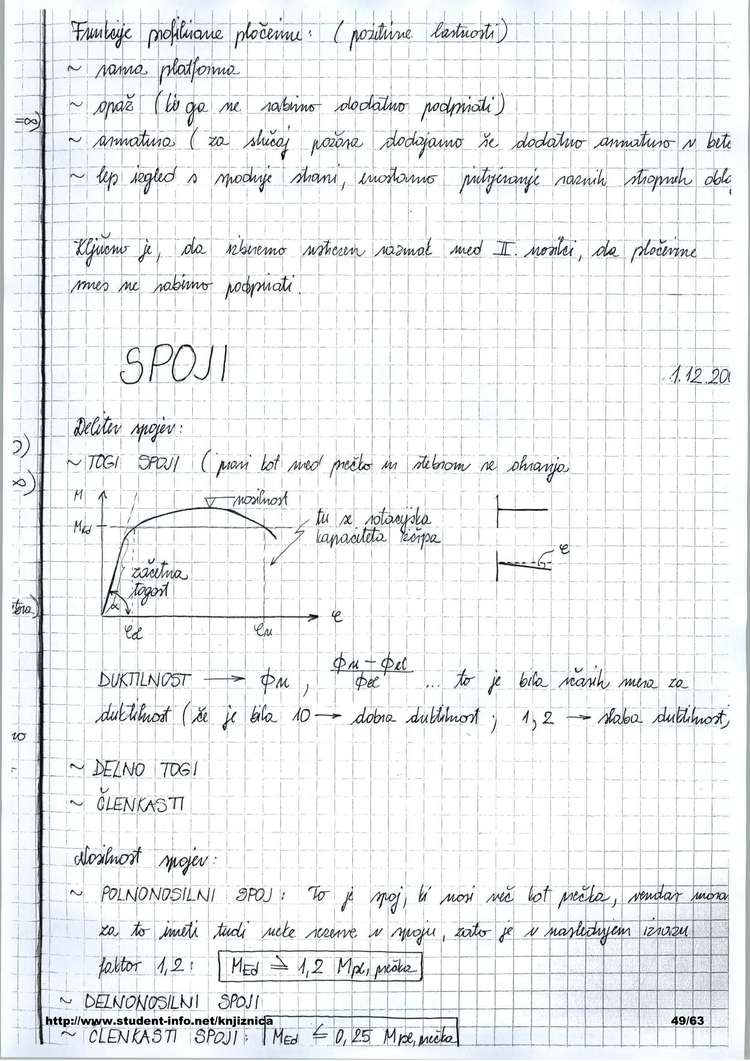 Funkcije profilirane pločevine: (pozitivne lastnosti)
~ sama platforma
~ opaž (ki ga ne rabimo dodatno podpirati)
=∞)
~ armatura (za slučaj požara dodajamo še dodatno armaturo v bet
~ lep izgled s spodnje strani, enostavno pritrjevanje raznih stropnih oblo
Ključno je, da izberemo ustrezen razmak med II. nosilci, da pločevine
vmes ne rabimo podpirati.
SPOJI
1.12.20
Delitev spojev:
~ TOGI SPOJI (pravi kot med prečko in stebrom se ohranja
M
nosilnost
MRd
tu se rotacijska
kapaciteta izčrpa
φ
začetna
togost
α
φ
φel
φu
DUKTILNOST → ϕu , ϕu - ϕel / ϕel ... to je bila včasih mera za
duktilnost (če je bila 10 → dobra duktilnost ; 1,2 → slaba duktilnost)
~ DELNO TOGI
~ ČLENKASTI
Nosilnost spojev:
~ POLNONOSILNI SPOJ : To je spoj, ki nosi več kot prečka, vendar mora
za to imeti tudi neke rezerve v spoju, zato je v naslednjem izrazu
faktor 1,2 : MEd ≥ 1,2 Mpl, prečka
~ DELNONOSILNI SPOJI
http://www.student-info.net/knjiznica
49/63
~ ČLENKASTI SPOJI : MEd ≤ 0,25 Mpl, prečka